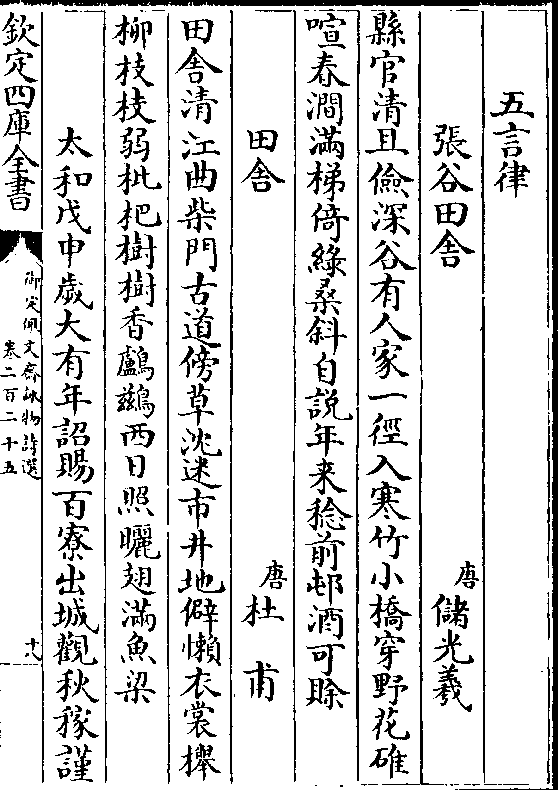 五言律
張谷田舍 唐 儲光羲
縣官清且儉深谷有人家一徑入寒竹小橋穿野花碓
喧春澗滿梯倚綠桑斜自說年来稔前邨酒可賒
田舍 唐 杜甫
田舍清江曲柴門古道傍草沈迷市井地僻懶衣裳櫸
柳枝枝弱枇杷樹樹香鸕鷀西日照曬翅滿魚梁
太和戊申歲大有年詔賜百寮出城觀秋稼謹
欽定四庫全書
御定佩文齋詠物詩選
卷二百二十五
十八